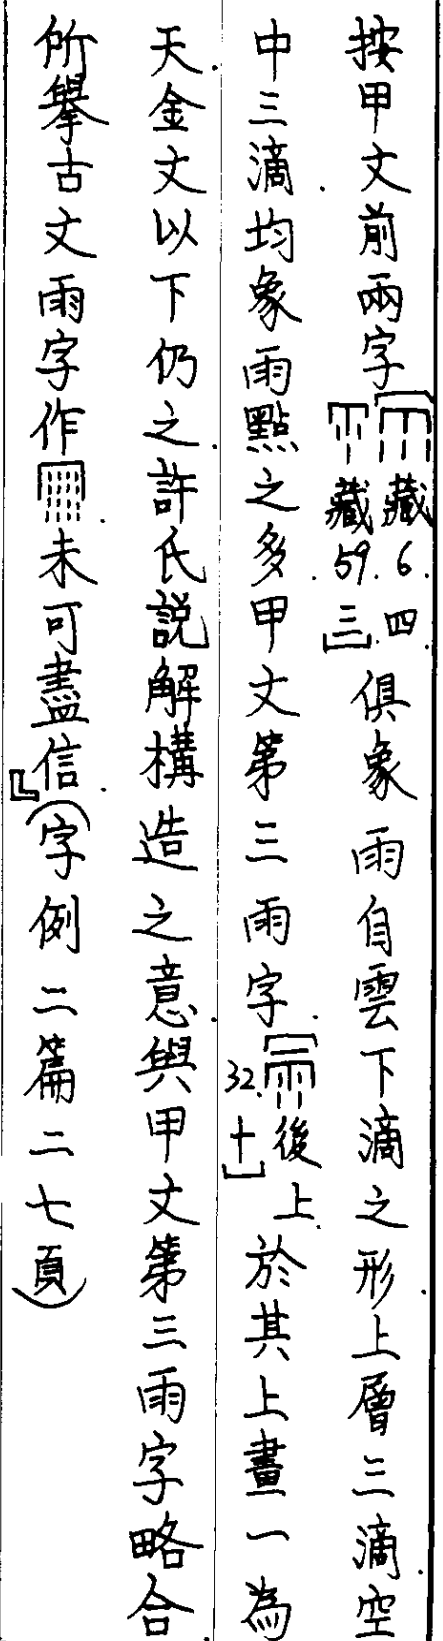 按甲文前兩字[藏6.四 藏59.三]俱象雨自雲下滴之形.上層三滴.空
中三滴.均象雨點之多.甲文第三雨字.[後上.32.十]於其上畫一為
天.金文以下仍之.許氏說解構造之意.與甲文第三雨字略合.
所舉古文雨字作.未可盡信.』(字例二篇二七頁)